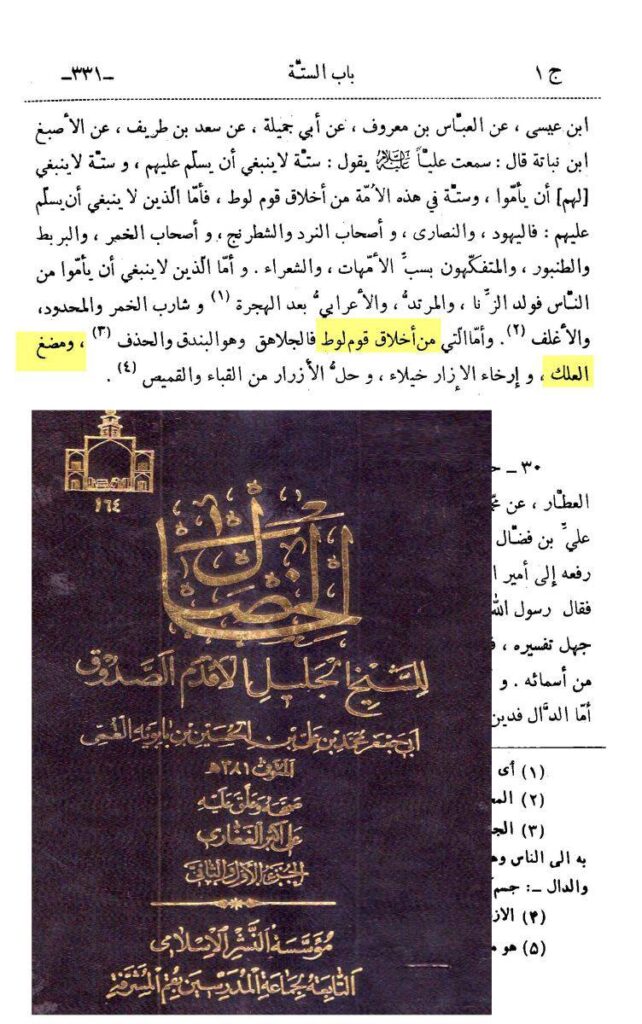 ج ١ باب الستّة -٣٣١-
ابن عيسى ، عن العبّاس بن معروف ، عن أبي جميلة ، عن سعد بن طريف ، عن الأصبغ
ابن نباتة قال : سمعت عليّاً عليه السلام يقول : ستّة لاينبغي أن يسلّم عليهم ، و ستّة لاينبغي
[لهم] أن يأمّوا ، وستّة في هذه الاُمّة من أخلاق قوم لوط ، فأمّا الّذين لا ينبغي أن يسلّم
عليهم : فاليهود ، والنصارى ، و أصحاب النرد والشطرنج ، و أصحاب الخمر ، والبربط
والطنبور ، والمتفكّهون بسبِّ الاُمّهات ، والشعراء . و أمّا الّذين لاينبغي أن يأمّوا من
النّاس فولد الزِّنا ، والمرتدُّ ، والأعرابيُّ بعد الهجرة (١) و شارب الخمر والمحدود،
والأغلف (٢). وأمّا الّتي من أخلاق قوم لوط فالجلاهق وهو البندق والحذف (٣) ، ومضغ
العلك ، و إرخاء الإزار خيلاء ، و حلُّ الأزرار من القباء والقميص (٤) .
٣٠ ـ
العطّار ، عن
عليِّ بن فضّال
رفعه إلى أمير
فقال رسول الله
جهل تفسيره ،
من أسمائه . و
أمّا الدّال فدين
(١) أى
(٢)
(٣)
به الى الناس
والدال ـ: جسم
(۴)
(۵) هو
١٦٤
الخصال
للشيخ الجليل الأقدم الصدوق
أبي جعفر محمد بن علي بن الحسين بن بابويه القمي
المتوفى ٣٨١ هـ
صححه وعلق عليه
علي أكبر الغفاري
الجزء الأول والثاني
مؤسسة النشر الإسلامي
التابعة لجماعة المدرسين بقم المشرفة